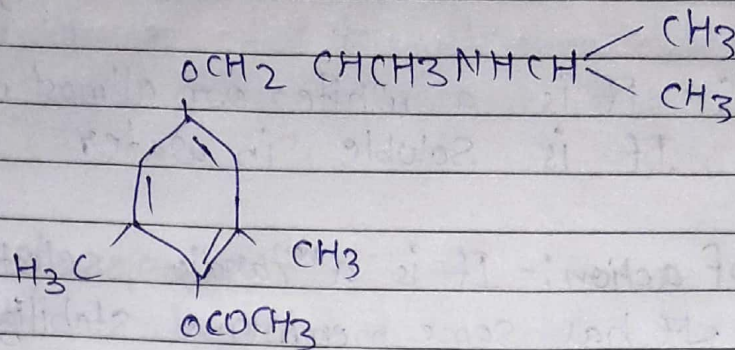 CH3
OCH2 CHCH3NHCH
CH3
H3C
CH3
OCOCH3